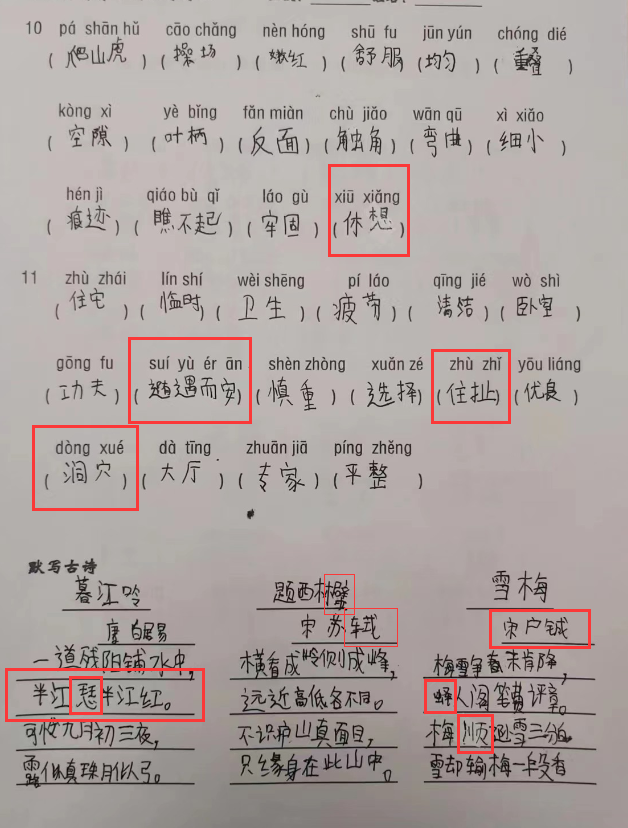 10 pá shān hǔ cāo chǎng nèn hóng shū fu jūn yún chóng dié
(爬山虎) (操场) (嫩红) (舒服) (均匀) (重叠)
kòng xì yè bǐng fǎn miàn chù jiǎo wān qū xì xiǎo
(空隙) (叶柄) (反面) (触角) (弯曲) (细小)
hén jì qiáo bù qǐ láo gù xiū xiǎng
(痕迹) (瞧不起) (牢固) (休想)
11 zhù zhái lín shí wèi shēng pí láo qīng jié wò shì
(住宅) (临时) (卫生) (疲劳) (清洁) (卧室)
gōng fu suí yù ér ān shèn zhòng xuǎn zé zhù zhǐ yōu liáng
(功夫) (遇而安) (慎重) (选择) (住扯) (优良)
dòng xué dà tīng zhuān jiā píng zhěng
(洞穴) (大厅) (专家) (平整)
默写古诗
暮江吟 题西林壁 雪梅
唐 白居易 宋 苏轼 宋 卢钺
一道残阳铺水中, 横看成岭侧成峰, 梅雪争春未肯降,
半江瑟半江红。 远近高低各不同。 人阁笔费评章。
可怜九月初三夜, 不识庐山真面目, 梅 逊雪三分白
露似真珠月似弓。 只缘身在此山中。 雪却输梅一段香